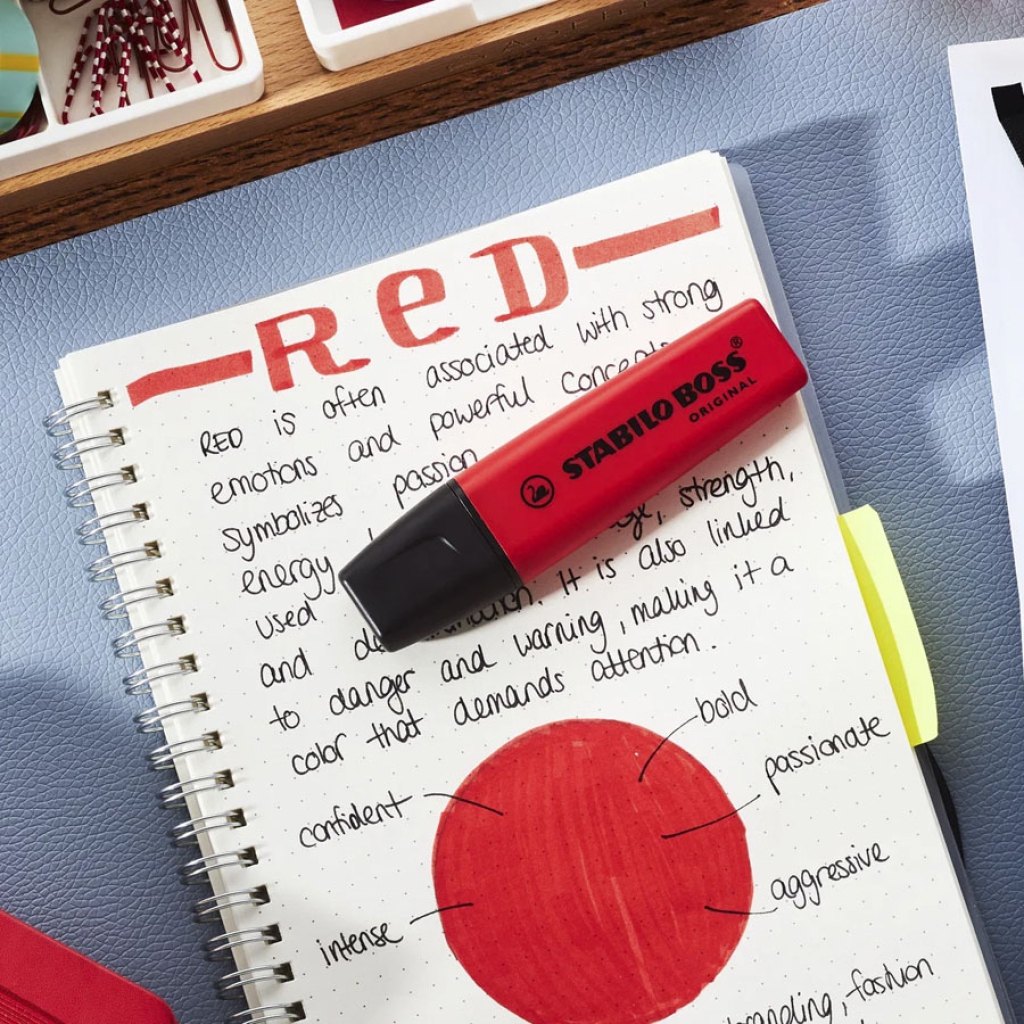 RED
RED is often associated with strong
emotions and powerful
symbolizes passion
energy
used strength,
and It is also linked
to danger and warning, making it a
color that demands attention.
STABILO BOSS®
ORIGINAL
bold
passionate
confident
aggressive
intense
branding, fashion